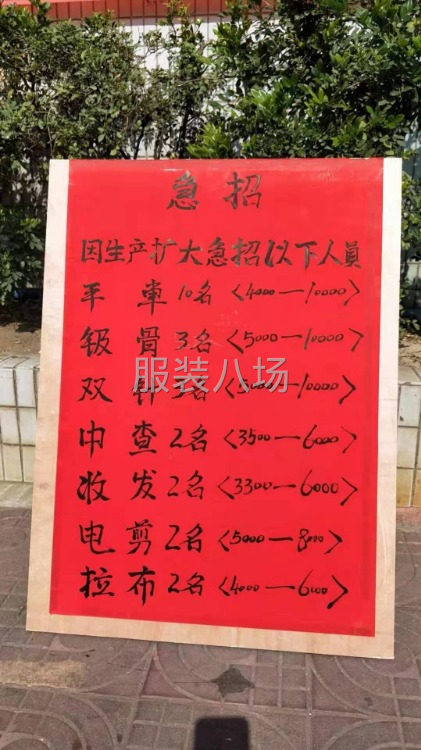 急招
因生产扩大急招以下人员
平車10名<4000—10000>
钑骨3名<5000—10000>
双针3名<5000—10000>
巾查2名<3500—6000>
收发2名<3300—6000>
电剪2名<5000—8000>
拉布2名<4000—6000>
服装八场